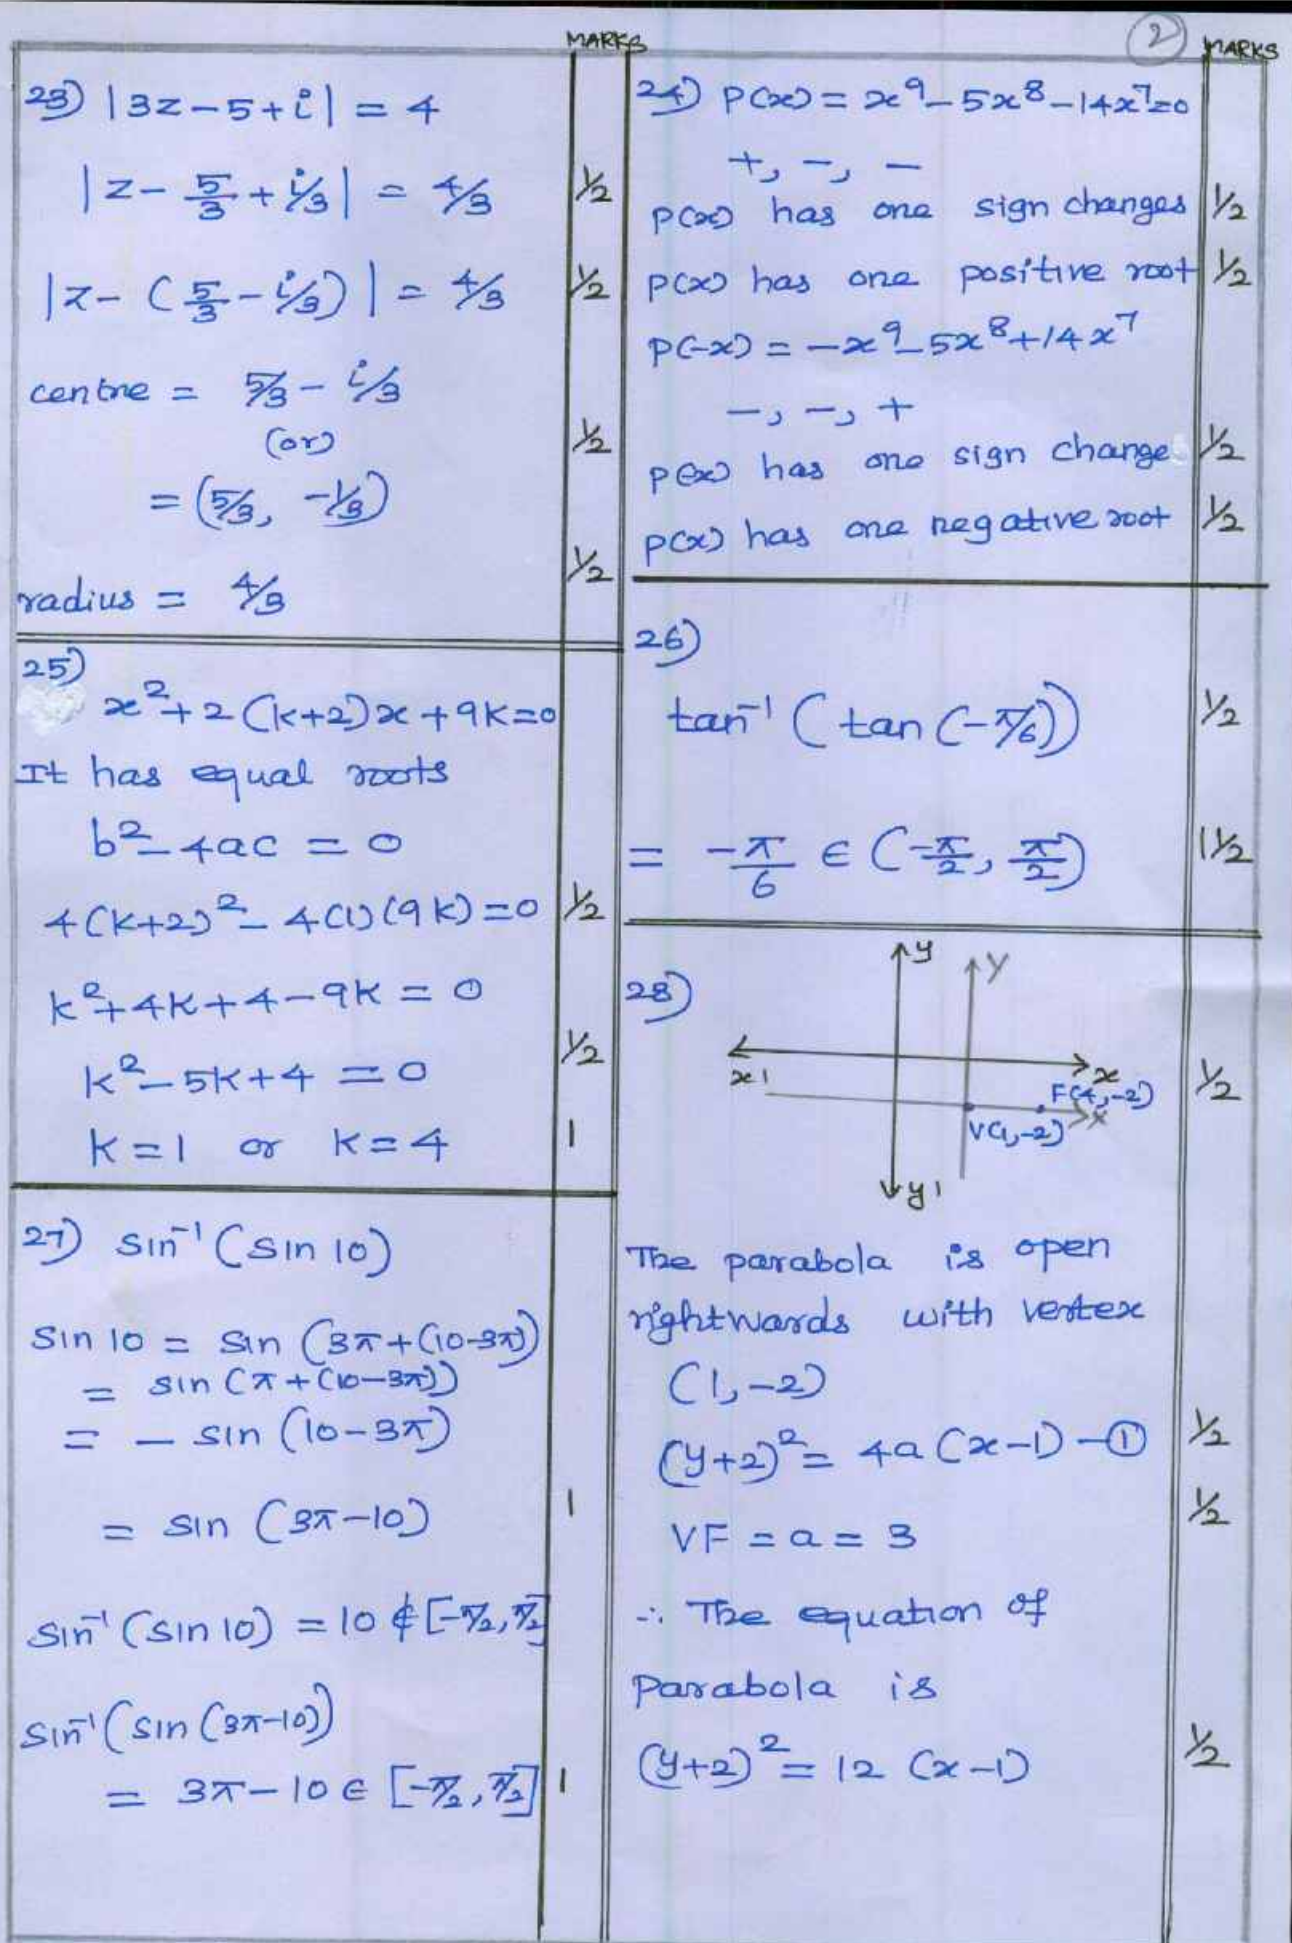 MARKS
23) |3z-5+i| = 4
|z - 5/3 + i/3| = 4/3 1/2
|z - (5/3 - i/3)| = 4/3 1/2
centre = 5/3 - i/3
(or) 1/2
= (5/3, -1/3)
radius = 4/3 1/2
25)
x² + 2(k+2)x + 9k=0
It has equal roots
b² - 4ac = 0
4(k+2)² - 4(1)(9k)=0 1/2
k² + 4k + 4 - 9k = 0
k² - 5k + 4 = 0 1/2
k = 1 or k = 4 1
27) sin⁻¹(sin 10)
sin 10 = sin (3π+(10-3π))
= sin (π+(10-3π))
= - sin (10-3π)
= sin (3π-10) 1
sin⁻¹(sin 10) = 10 ∉ [-π/2, π/2]
sin⁻¹(sin (3π-10))
= 3π-10 ∈ [-π/2, π/2] 1
2 MARKS
24) P(x) = x⁹ - 5x⁸ - 14x⁷=0
+, -, -
P(x) has one sign changes 1/2
P(x) has one positive root 1/2
P(-x) = -x⁹ - 5x⁸ + 14x⁷
-, -, +
P(-x) has one sign change 1/2
P(x) has one negative root 1/2
26)
tan⁻¹(tan(-π/6)) 1/2
= -π/6 ∈ (-π/2, π/2) 1 1/2
28)
y Y
x' x
F(4,-2) 1/2
V(1,-2) X
y'
The parabola is open
rightwards with vertex
(1,-2)
(y+2)² = 4a(x-1) - ① 1/2
VF = a = 3 1/2
∴ The equation of
parabola is
(y+2)² = 12 (x-1) 1/2